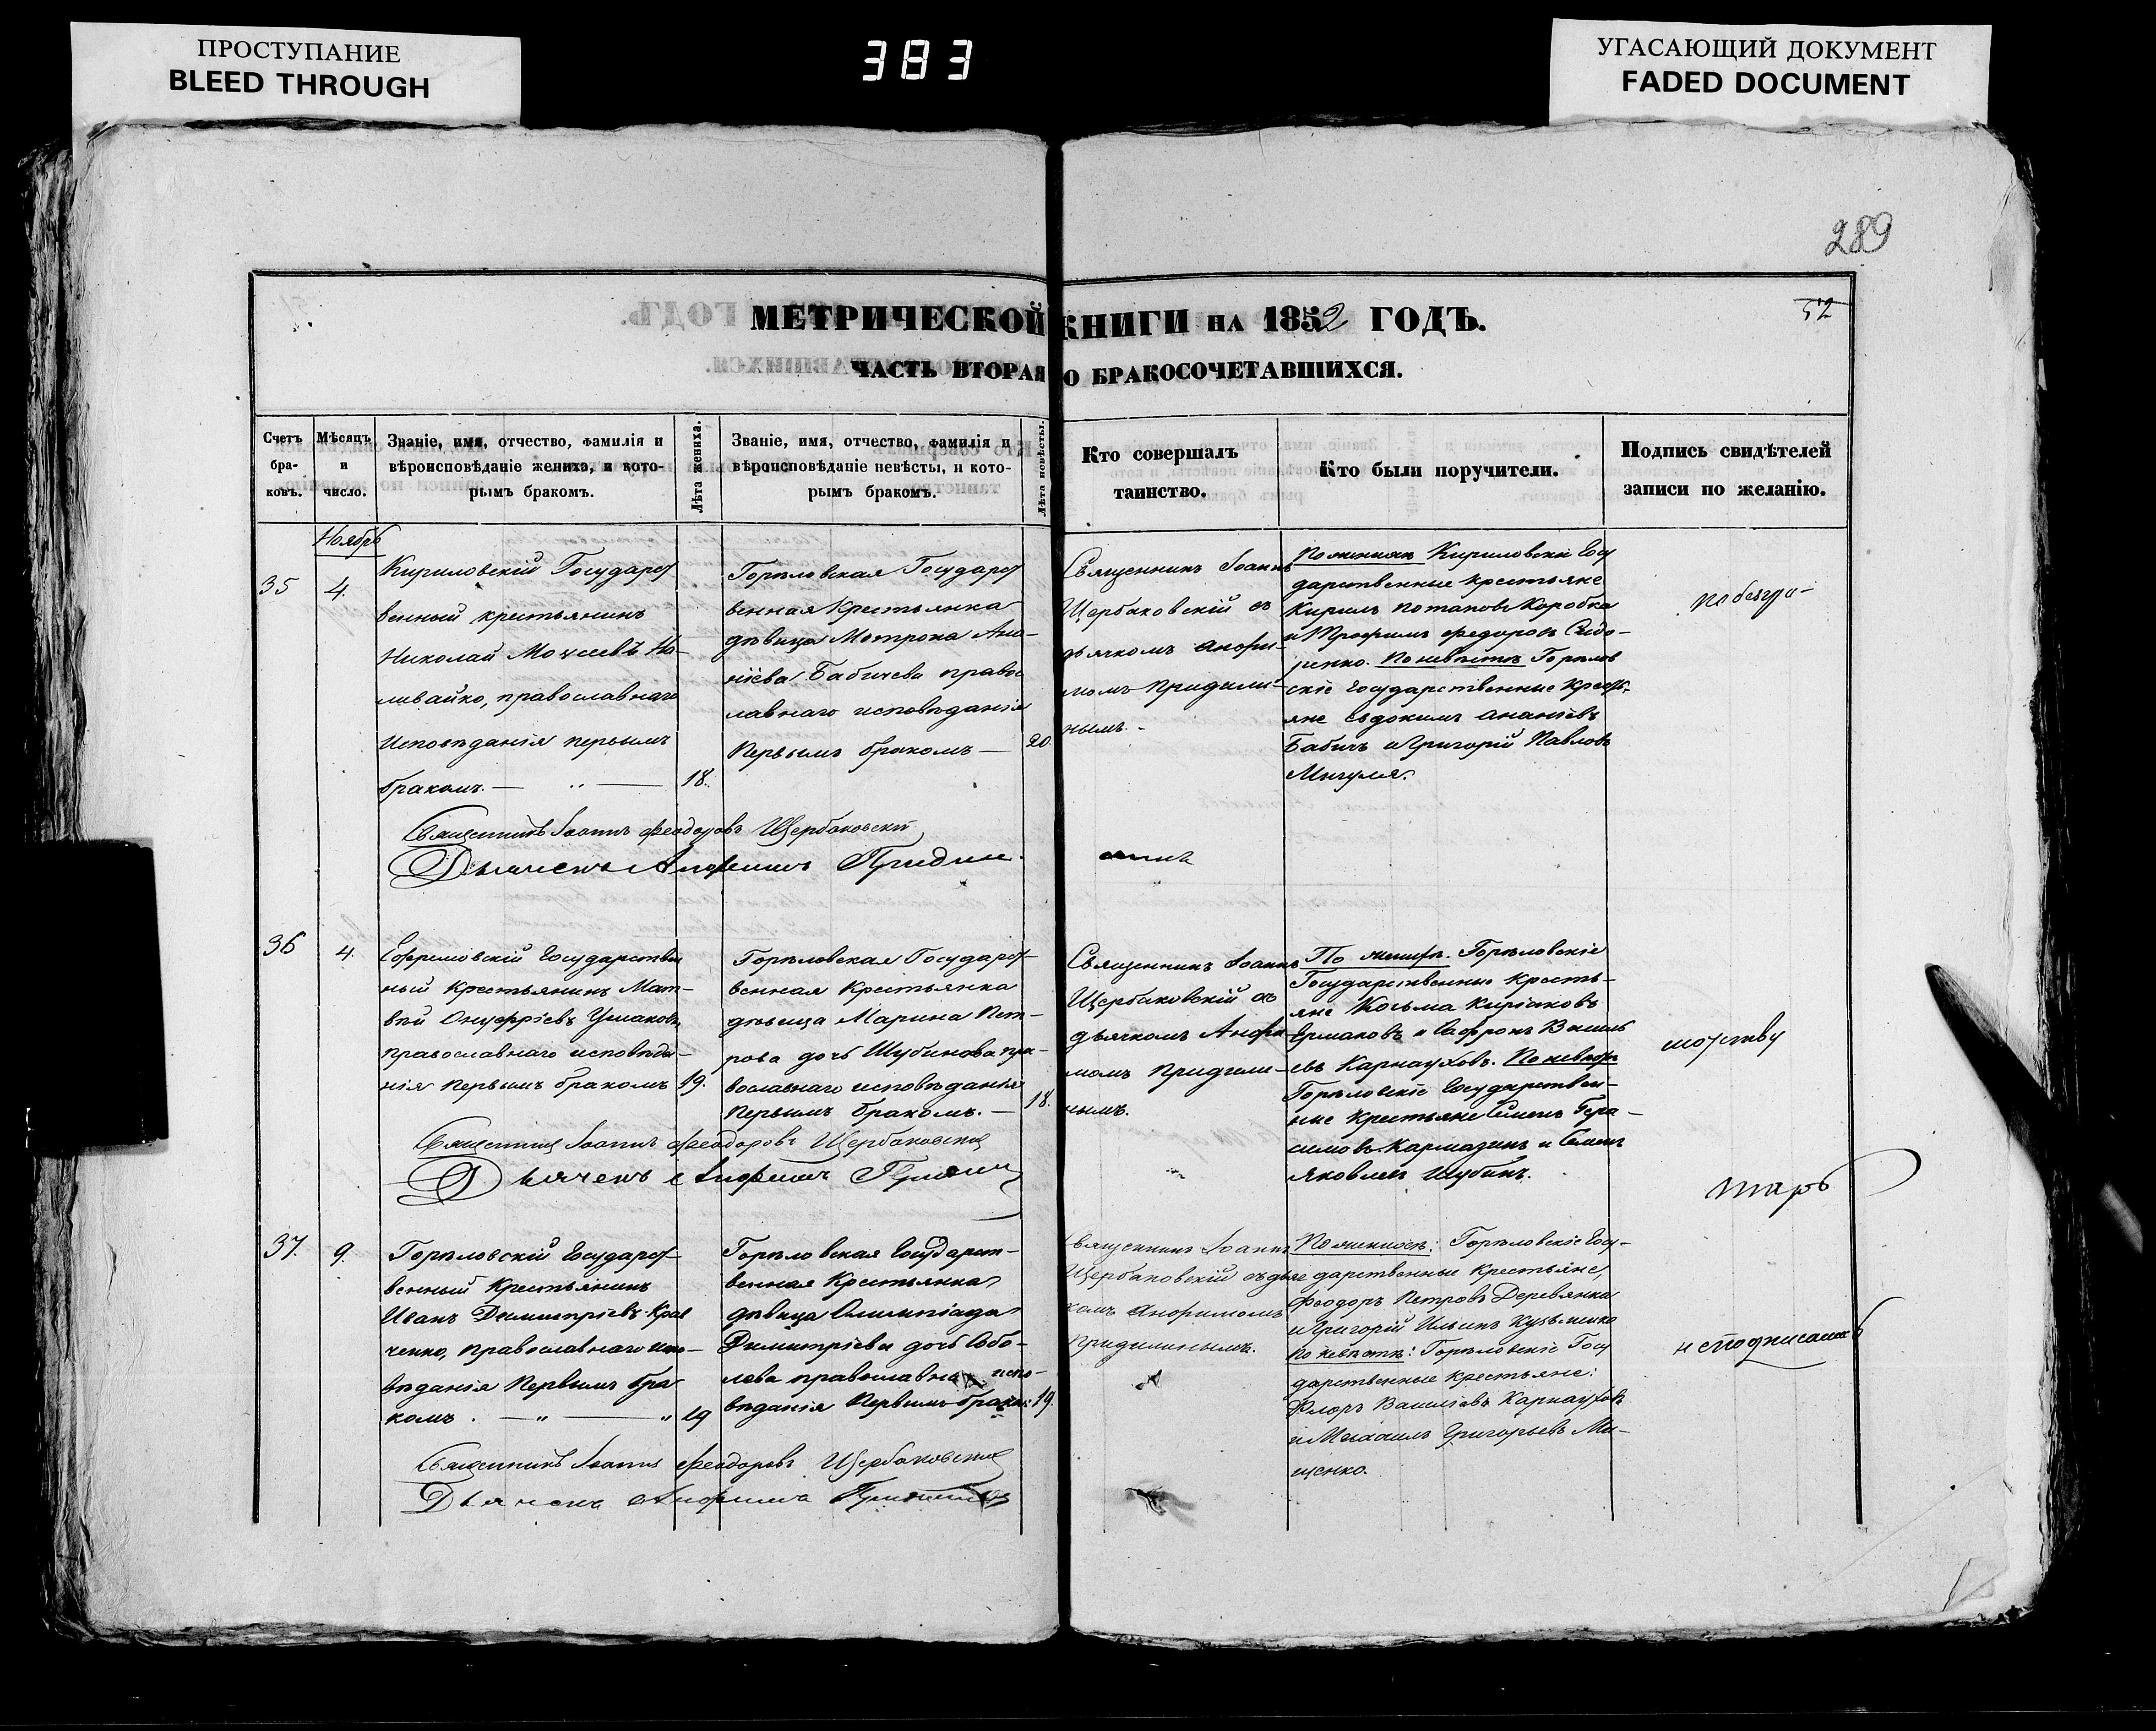 ПРОСТУПАНИЕ
BLEED THROUGH
383
УГАСАЮЩИЙ ДОКУМЕНТ
FADED DOCUMENT
289
52
МЕТРИЧЕСКОЙ КНИГИ НА 1852 ГОДЪ.
ЧАСТЬ ВТОРАЯ О БРАКОСОЧЕТАВШИХСЯ.
Счетъ
бра-
ковъ.
Мѣсяцъ
и
число.
Званіе, имя, отчество, фамилія и
вѣроисповѣданіе жениха, и кото-
рымъ бракомъ.
Лѣта жениха.
Званіе, имя, отчество, фамилія и
вѣроисповѣданіе невѣсты, и кото-
рымъ бракомъ.
Лѣта невѣсты.
Кто совершалъ
таинство.
Кто были поручители.
Подпись свидѣтелей
записи по желанію.
Ноябрь
35
4.
Кириловскій Государст
венный крестьянинъ
Николай Моисеевъ На-
ливайко, православнаго
исповѣданія первымъ
бракомъ.
18.
Горѣловская Государст
венная Крестьянка
дѣвица Матрона Ана-
ніева Бабичева правос
лавнаго исповѣданія
Первымъ бракомъ —
20.
Священникъ Іоаннъ
Щербаковскій съ
дьячкомъ Анфи-
момъ Придили-
нымъ.
По женихѣ Кириловскіе Госу
дарственные крестьяне
Кирилъ Потаповъ Коробка
и Трофимъ Федоровъ Сидо-
ренко. По невѣстѣ Горѣлов
скіе Государственные Кресть-
яне Евдокимъ Ананіевъ
Бабичъ и Григорій Павловъ
Мигуля.
Священникъ Іоаннъ Феодоровъ Щербаковскій
Дьячекъ Анфимъ
36
4.
Ефремовскій Государствен
ный Крестьянинъ Мат-
вѣй Онуфріевъ Ушаковъ,
православнаго исповѣда-
нія Первымъ бракомъ
19.
Горѣловская Государст-
венная Крестьянка
дѣвица Марина Пет-
рова дочь Шубинова пра-
вославнаго исповѣданія
Первымъ бракомъ. —
18.
Священникъ Іоаннъ
Щербаковскій съ
дьячкомъ Анфи-
момъ Придили-
нымъ.
По женихѣ. Горѣловскіе
Государственные Кресть-
яне Козьма Киріаковъ
Ермаковъ и Сафронъ Василь
евъ Карнауховъ. По невѣстѣ
Горѣловскіе Государствен-
ные Крестьяне Семенъ Гера-
симовъ Кармазинъ и Семенъ
Яковлевъ Шубинъ.
Священникъ Іоаннъ Феодоровъ Щербаковскій
Дьячекъ Анфимъ
37.
9.
Горѣловскій Государст-
венный Крестьянинъ
Иванъ Димитріевъ Крав
ченко, православнаго испо-
вѣданія Первымъ бра
комъ.
19
Горѣловская Государст-
венная Крестьянка
дѣвица Олимпіада
Димитріева дочь Собо-
лева православна испо-
вѣданія Первымъ бракомъ
19.
Священникъ Іоаннъ
Щербаковскій съ дьяч
комъ Анфимомъ
Придилинымъ.
По женихѣ: Горѣловскіе Госу-
дарственные Крестьяне,
Феодоръ Петровъ Деревянка
и Григорій Ильинъ Кузьменко
По невѣстѣ: Горѣловскіе Госу
дарственные крестьяне:
Флоръ Василіевъ Карнауховъ
и Михаилъ Григорьевъ Ми-
щенко.
Священникъ Іоаннъ Феодоровъ Щербаковскій
Дьячекъ Анфимъ